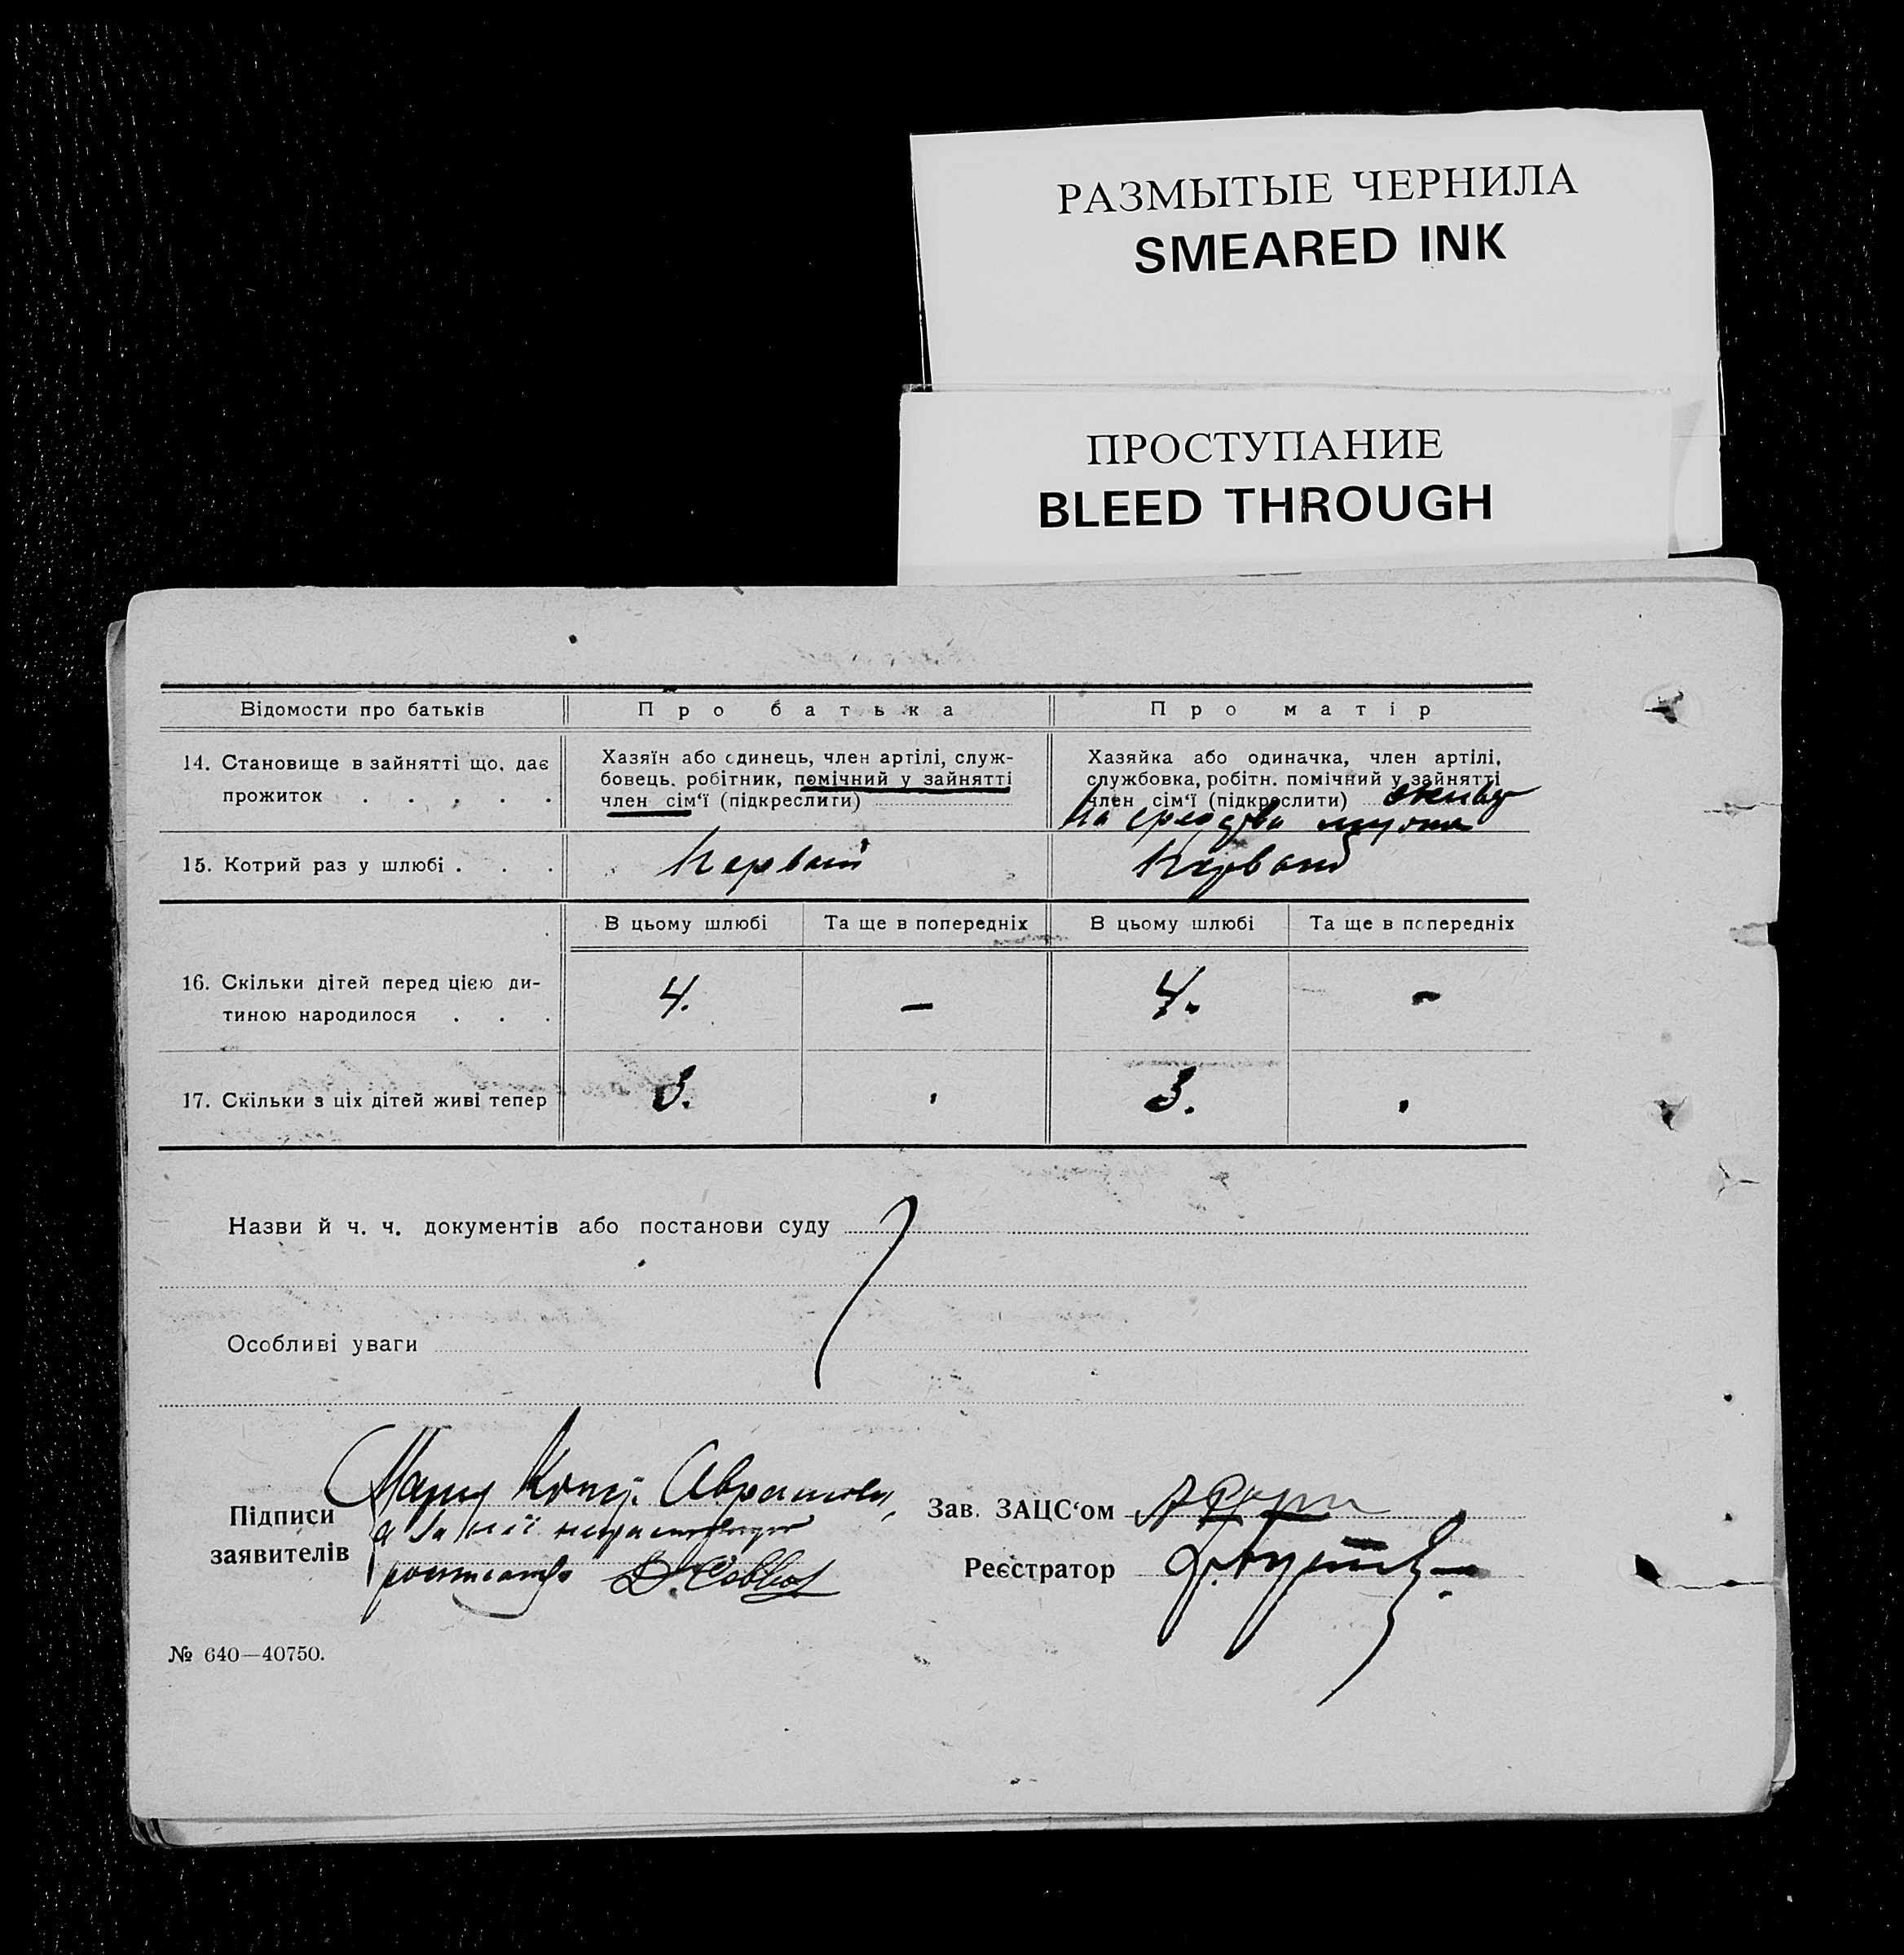 РАЗМЫТЫЕ ЧЕРНИЛА
SMEARED INK
ПРОСТУПАНИЕ
BLEED THROUGH
Відомости про батьків
Про батька
Про матір
14. Становище в зайнятті що, дає
прожиток . . . . .
Хазяїн або одинець, член артілі, служ-
бовець. робітник, помічний у зайнятті
член сім‘ї (підкреслити)
Хазяйка або одиначка, член артілі,
службовка, робітн. помічний у зайнятті
член сім‘ї (підкреслити)
на средства мужа
15. Котрий раз у шлюбі . . .
Первый
Первый
В цьому шлюбі
Та ще в попередніх
В цьому шлюбі
Та ще в попередніх
16. Скільки дітей перед цією ди-
тиною народилося . . .
4.
—
4.
—
17. Скільки з ціх дітей живі тепер
3.
3.
Назви й ч. ч. документів або постанови суду
Особливі уваги
Підписи
заявителів
Зав. ЗАЦС‘ом
Реєстратор
№ 640—40750.